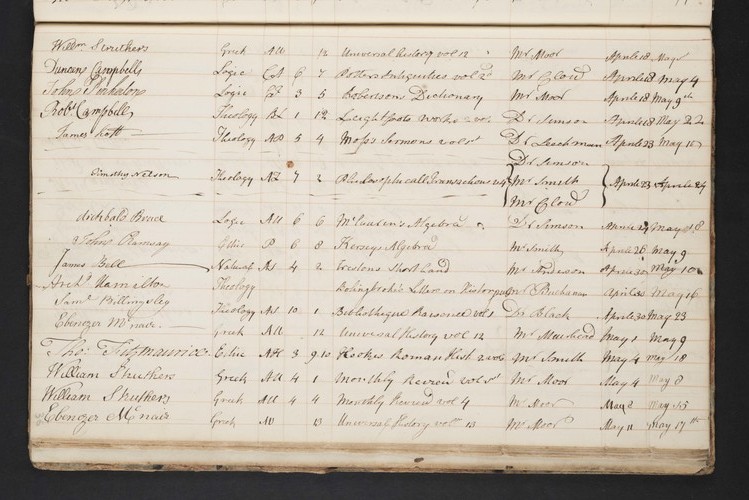 Willm Struthers Greek AU 12 Universal history vol 12 Mr Moor Aprile 18 May
Duncan Campbells Logic CA 6 7 Potters Antiquities vol 2d Mr Cloud Aprile 18 May 4
Logic 3 5 Robertsons Dictionary Mr Moor Aprile 18 May 9th
Robt Campbell Theology BL 1 12 Leightfoots works vol Dr Simson Aprile 18 May 22
James Theology 5 4 Moss's Sermons vol 1st Dr Leechman Aprile 23 May 10
Dr Simson
Timothy Nelson Theology 7 2 Philosophicall Transactions Mr Smith Aprile 23 Aprile 24
Mr Cloud
Archbald Logic AU 6 6 McLauren's Algebra Dr Simson Aprile 24 May 18
John Ramsay Ethic P 6 8 Kerseys Algebra Mr Smith Aprile 26 May 9
James Bell Natural As 4 2 Short hand Mr Anderson Aprile 30 May 10
Archd Hamilton Theology Bolingbroke's Letters on History Mr Buchanan Aprile 30 May 16
Saml Billingsley Theology As 10 1 Bibliotheque Raisonee vol 1 Dr Black Aprile 30 May 23
Ebenezer Mcnair Greek AU 12 Universal History vol 12 Mr Muirhead May 1 May 9
Tho: Fitzmaurice Ethic AH 3 9.10 Hookes Roman Hist 2 vols Mr Smith May 4 May 18
William Struthers Greek AU 4 1 Monthly Review vol 1st Mr Moor May 4 May 8
William Struthers Greek AU 4 4 Monthly Review vol 4 Mr Moor May 8 May 15
Ebenezer Mcnair Greek AU 13 Universal History voll 13 Mr Moor May 11 May 17th